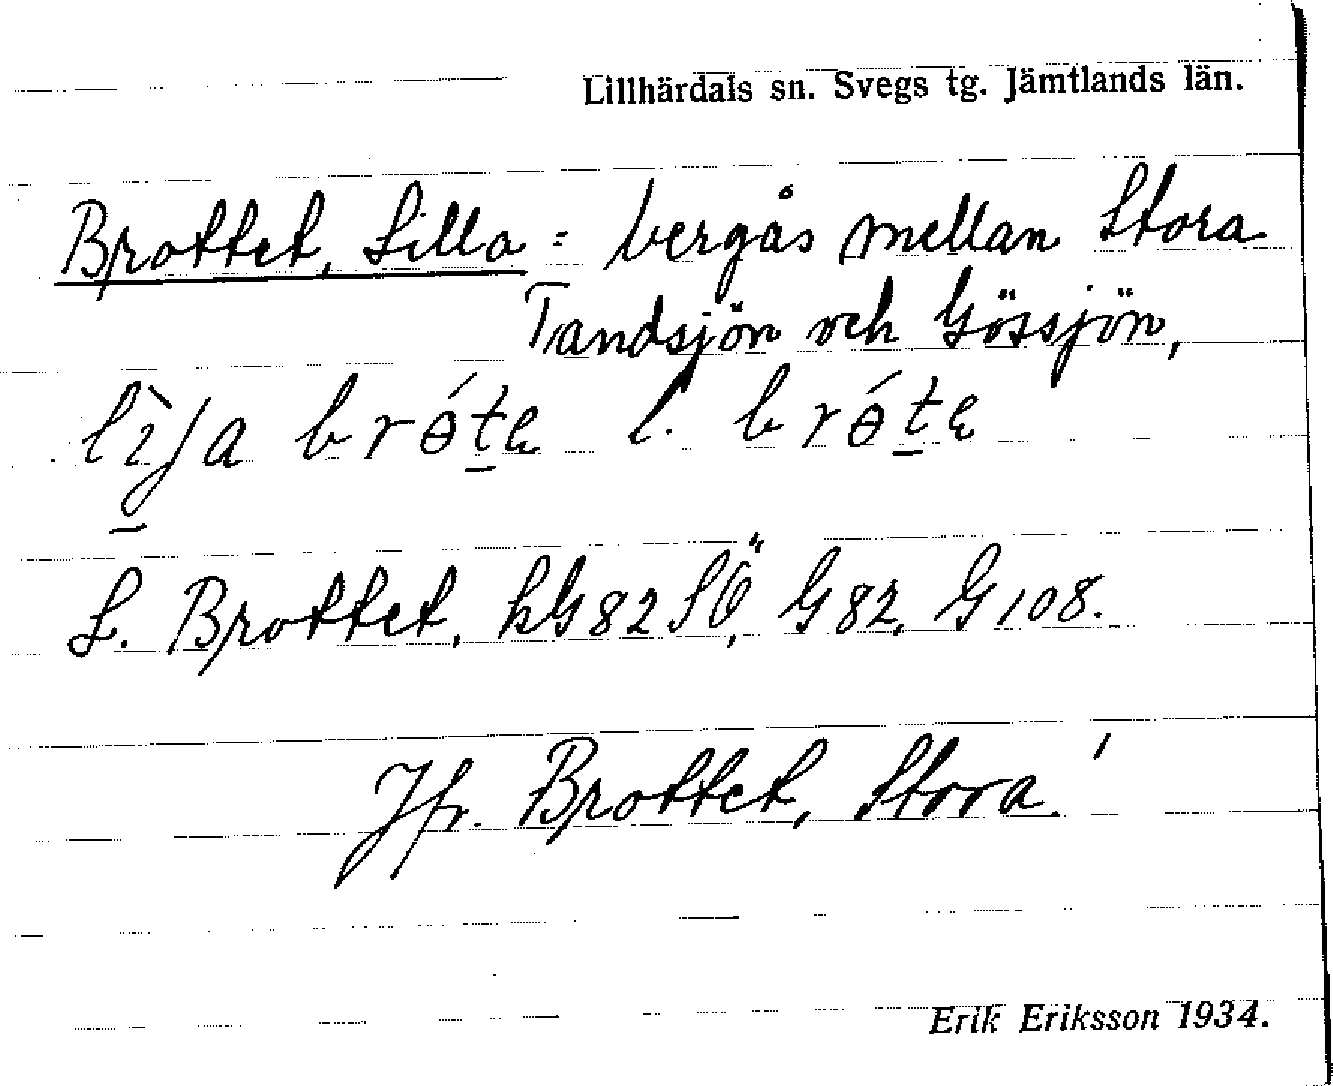 Lillhärdals sn. Svegs tg. Jämtlands län.
Brottet, Lilla = bergås mellan Stora
Tandsjön och Gössjön,
lìʃa brɵ́te l. brɵ́te
L. Brottet, kG82SÖ, G82, G108.
Jfr. Brottet, Stora!
Erik Eriksson 1934.